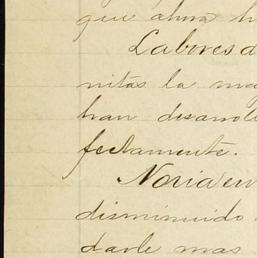 que ahora h
Labores d
nitas la ma
han desarol
fectamente.
Noria en
disminuido
darle mas